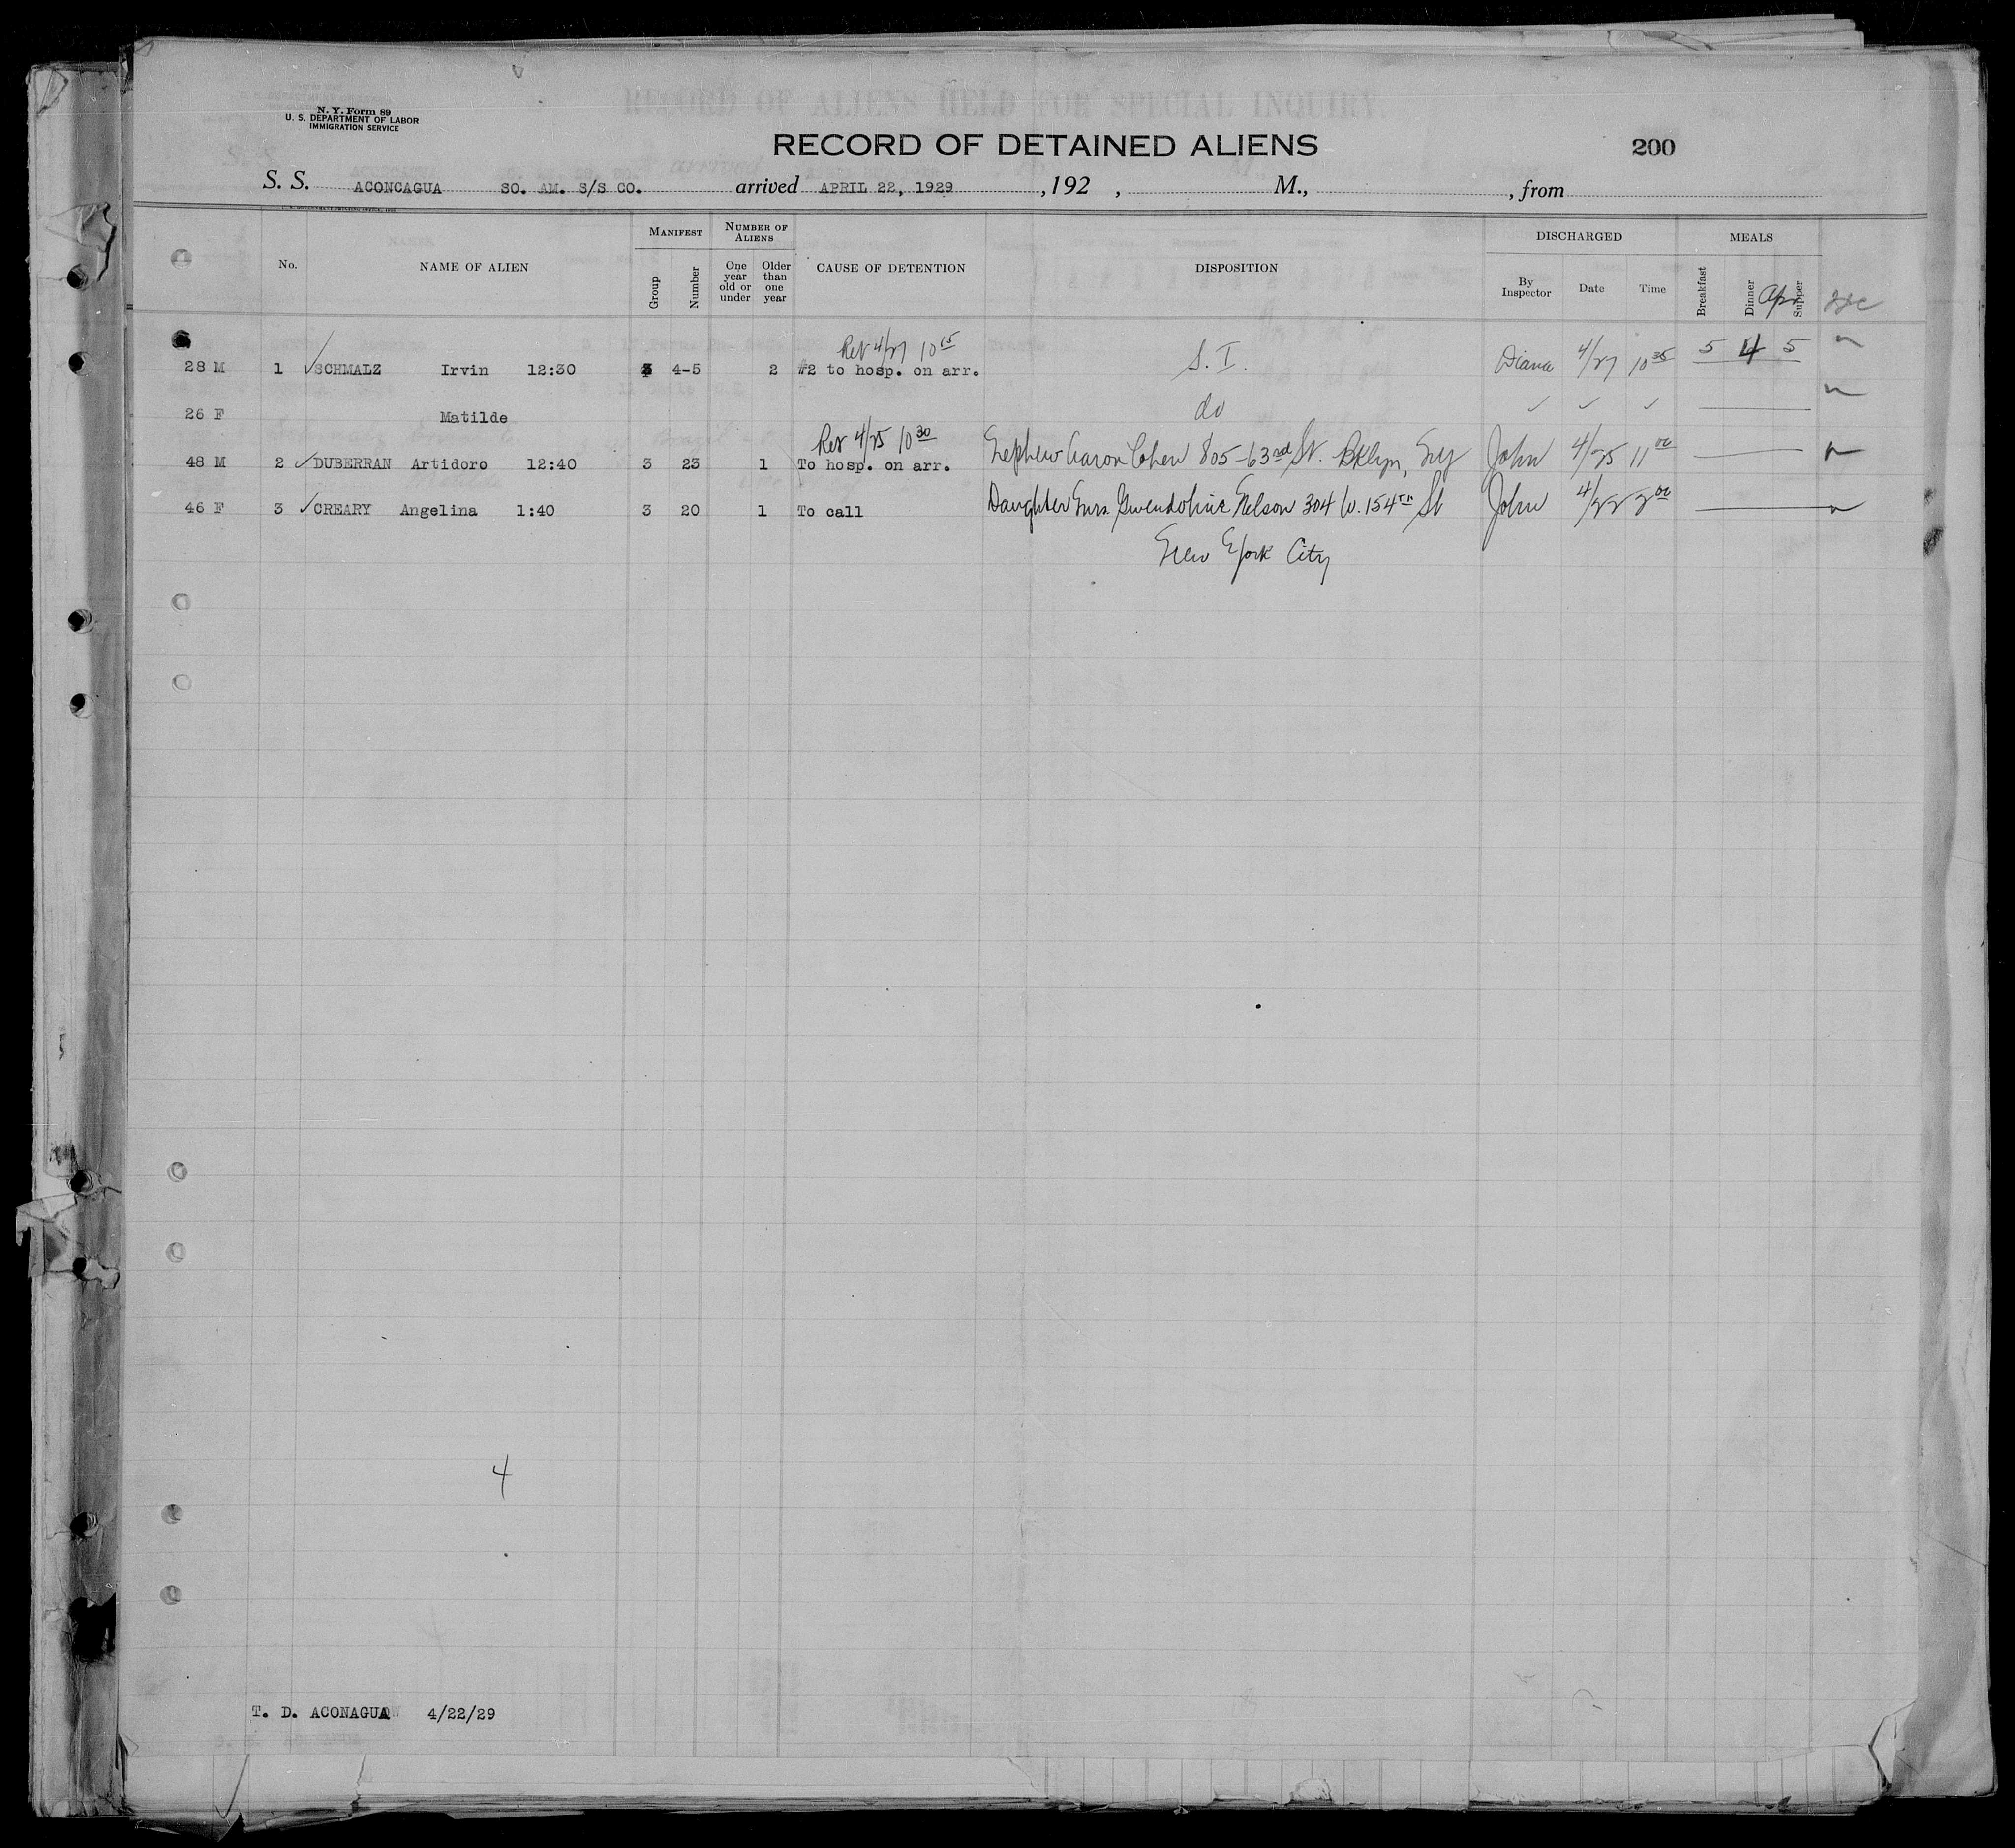 N. Y. Form 89
U. S. DEPARTMENT OF LABOR
IMMIGRATION SERVICE
RECORD OF ALIENS HELD FOR SPECIAL INQUIRY.
RECORD OF DETAINED ALIENS
200
S. S. ACONCAGUA SO. AM. S/S CO. arrived APRIL 22, 1929 , 192 , M., , from
No. NAME OF ALIEN MANIFEST Group Number NUMBER OF ALIENS One year old or under Older than one year CAUSE OF DETENTION DISPOSITION DISCHARGED By Inspector Date Time MEALS Breakfast Dinner Supper
Ret 4/27 10 15
28 M 1 SCHMALZ Irvin 12:30 3 4-5 2 #2 to hosp. on arr. S. I. Diana 4/27 10 35 5 4 5
26 F Matilde do
Ret 4/25 10 30
48 M 2 DUBERRAN Artidoro 12:40 3 23 1 To hosp. on arr. Nephew Aaron Cohen 805-63rd St. Bklyn, Ny John 4/25 11 00
46 F 3 CREARY Angelina 1:40 3 20 1 To call Daughter Mrs. Gwendoline Nelson 304 W. 154th St John 4/22 3 00
New York City
4
T. D. ACONAGUA 4/22/29